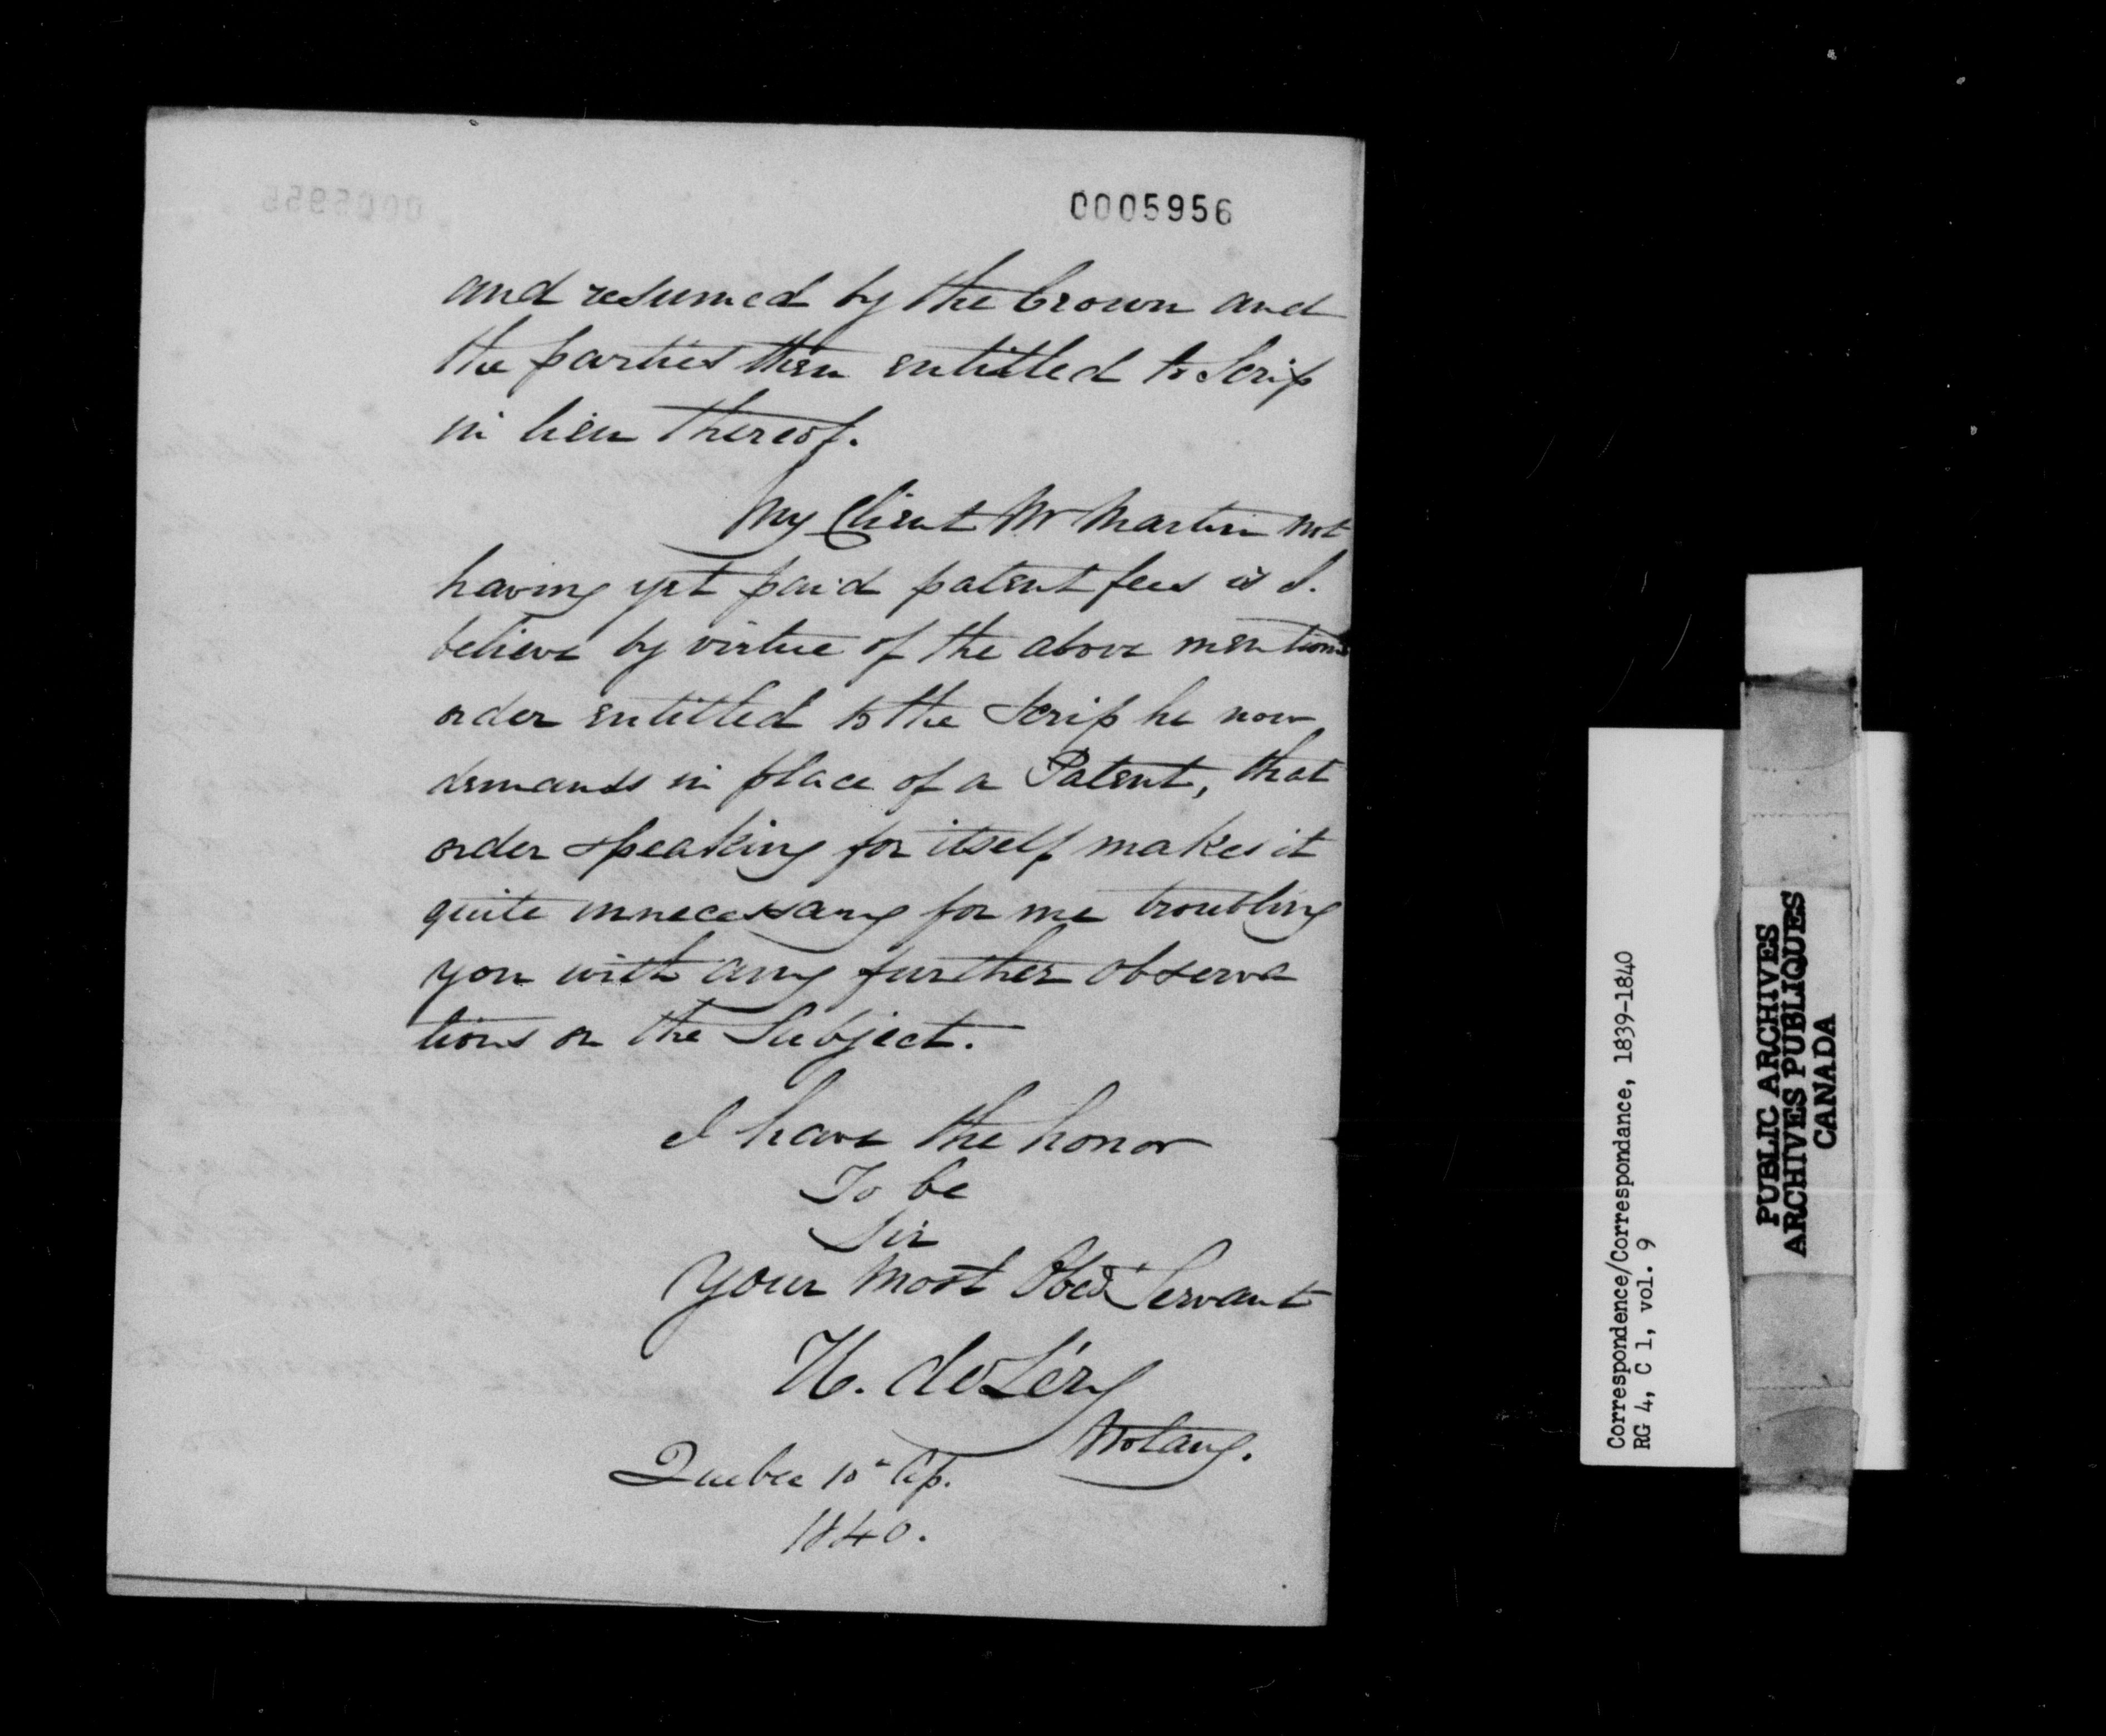 0005956
and resumed by the Crown and
the parties then entitled to Scrip
in lieu thereof.
My Client Mr Martin not
having yet paid patent fees is I.
believe by virtue of the above mention
order entitled to the Scrip he now
demands in place of a Patent, that
order speaking for itself makes it
quite unnecessary for me troubling
you with any further observa
tions on the Subject.
I have the honor
To be
Sir
Your most Obed Servant
H. de Léry
Notary.
Quebec 10th Ap.
1840.
Correspondence/Correspondance, 1839-1840
RG 4, C 1, vol. 9
PUBLIC ARCHIVES
ARCHIVES PUBLIQUES
CANADA